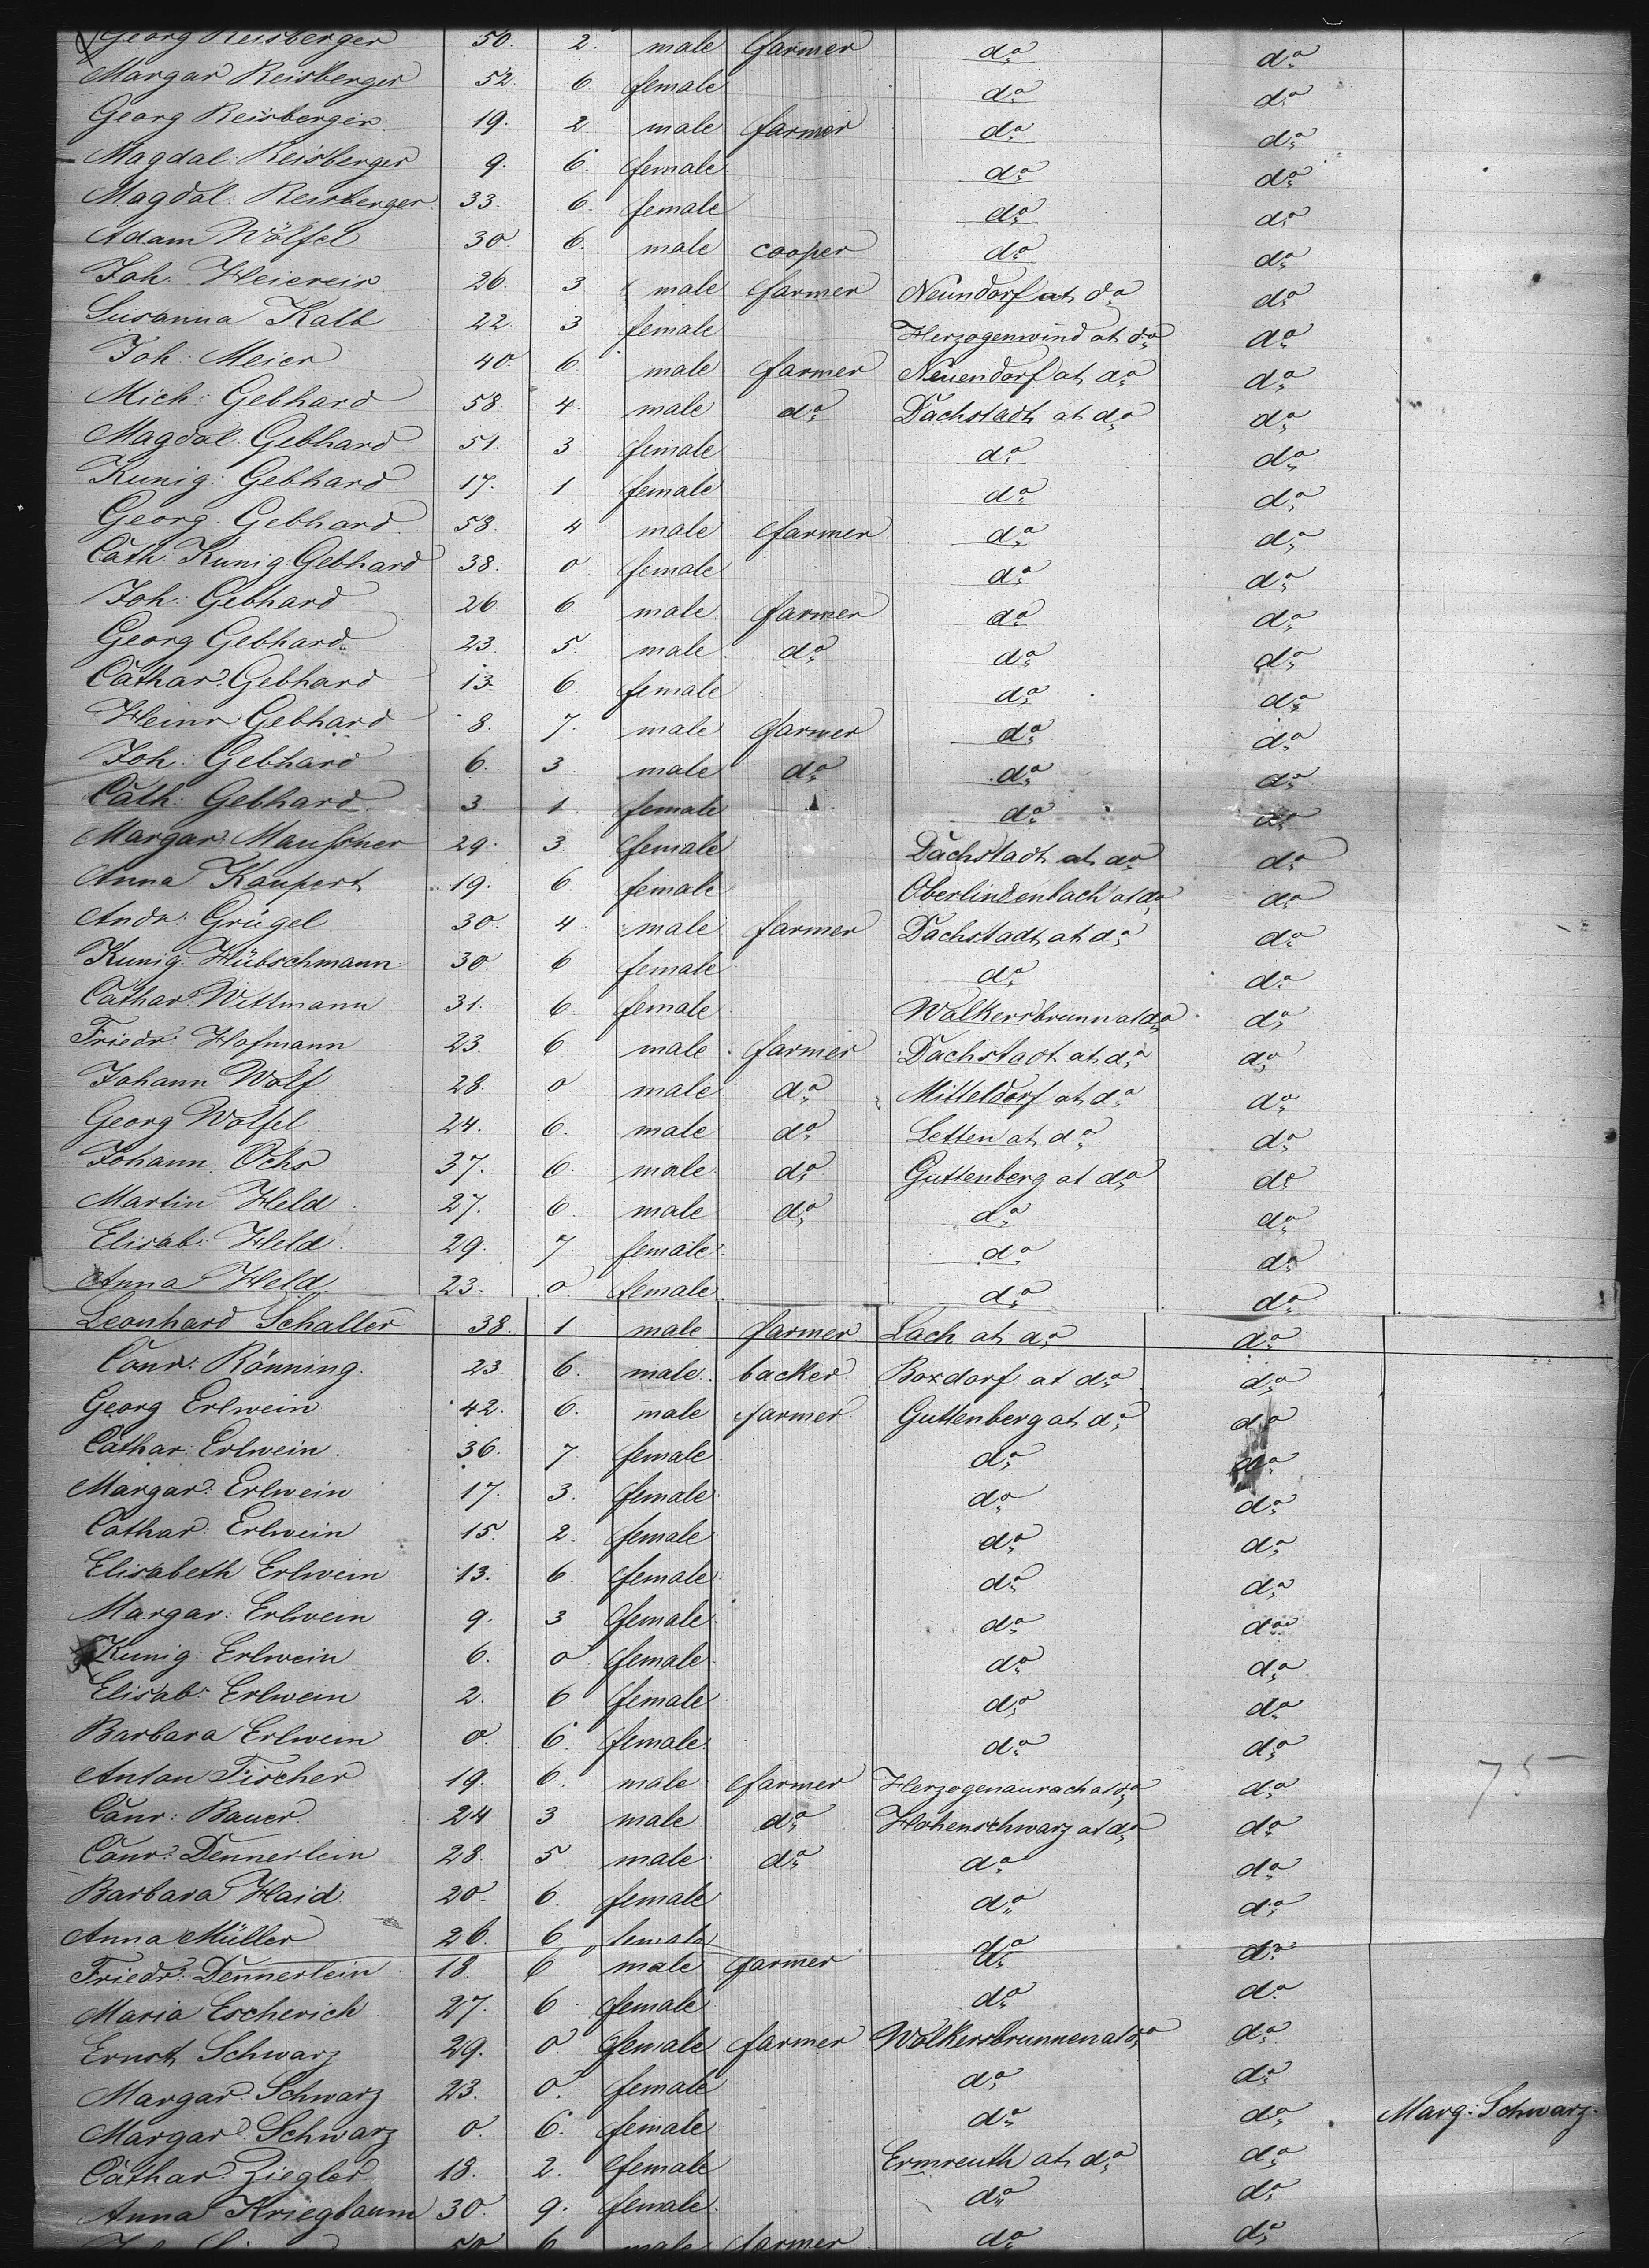 Georg Reisberger 50. 2. male farmer do do
Margar Reisberger 52. 6. female do do
Georg Reisberger 19. 2 male farmer do do
Magdal: Reisberger 9. 6. female do do
Magdal: Reisberger 33. 6. female do do
Adam Wölfel 30. 6. male cooper do do
Joh: Heiereis 26. 3 male farmer Neundorf at do do
Susanna Kalb 22. 3 female Herzogenwind at do do
Joh: Meier 40. 6. male farmer Neuendorf at do do
Mich: Gebhard 58 4. male do Dachstadt at do do
Magdal: Gebhard 51. 3 female do do
Kunig: Gebhard 17. 1 female do do
Georg Gebhard 58. 4 male farmer do do
Cath: Kunig: Gebhard 38. 0 female do do
Joh: Gebhard 26. 6. male farmer do do
Georg Gebhard 23. 5. male do do do
Cathar: Gebhard 13. 6. female do do
Heinr Gebhard 8. 7. male farmer do do
Joh: Gebhard 6. 3 male do do do
Cath: Gebhard 3 1. female do do
Margar: Maussner 29. 3 female Dachstadt at do do
Anna Kaupert 19. 6. female Oberlindenbach at do do
Andr: Grügel 30. 4 male farmer Dachstadt at do do
Kunig: Hübschmann 30 6 female do do
Cathar: Wittmann 31. 6. female Walkersbrunn at do do
Friedr: Hofmann 23. 6 male farmer Dachstadt at do do
Johann Wolf 28. 0 male do Mitteldorf at do do
Georg Wolfel 24. 6. male do Letten at do do
Johann Ochs 37. 6. male do Guttenberg at do do
Martin Held 27. 6. male do do do
Elisab: Held 29. 7 female do do
Anna Held 23. 0 female do do
Leonhard Schaller 38. 1 male farmer Lach at do do
Conr: Ränning. 23 6. male backer Boxdorf at do do
Georg Erlwein 42. 6. male farmer Guttenberg at do do
Cathar: Erlwein 36. 7. female do do
Margar: Erlwein 17. 3. female do do
Cathar: Erlwein 15. 2. female do do
Elisabeth Erlwein 13. 6. female do do
Margar: Erlwein 9. 3 female do do
Kunig: Erlwein 6. 0 female do do
Elisab: Erlwein 2. 6 female do do
Barbara Erlwein 0. 6. female do do
Anton Fischer 19. 6. male farmer Herzogenaurach at do do
75
Conr: Bauer 24 3 male do Hohenschwarz at do do
Conr: Dennerlein 28. 5 male do do do
Barbara Haid 20. 6. female do do
Anna Müller 26. 6 female do do
Friedr: Dennerlein 18. 6 male farmer do do
Maria Escherich 27. 6. female do do
Ernst Schwarz 29. 0. female farmer Walkersbrunnen at do do
Margar: Schwarz 23. 0. female do do
Margar: Schwarz 0. 6. female do do Marg: Schwarz.
Cathar: Ziegler 18. 2. female Ermreuth at do do
Anna Kriegbaum 30. 9. female do do
50 6 male farmer do do